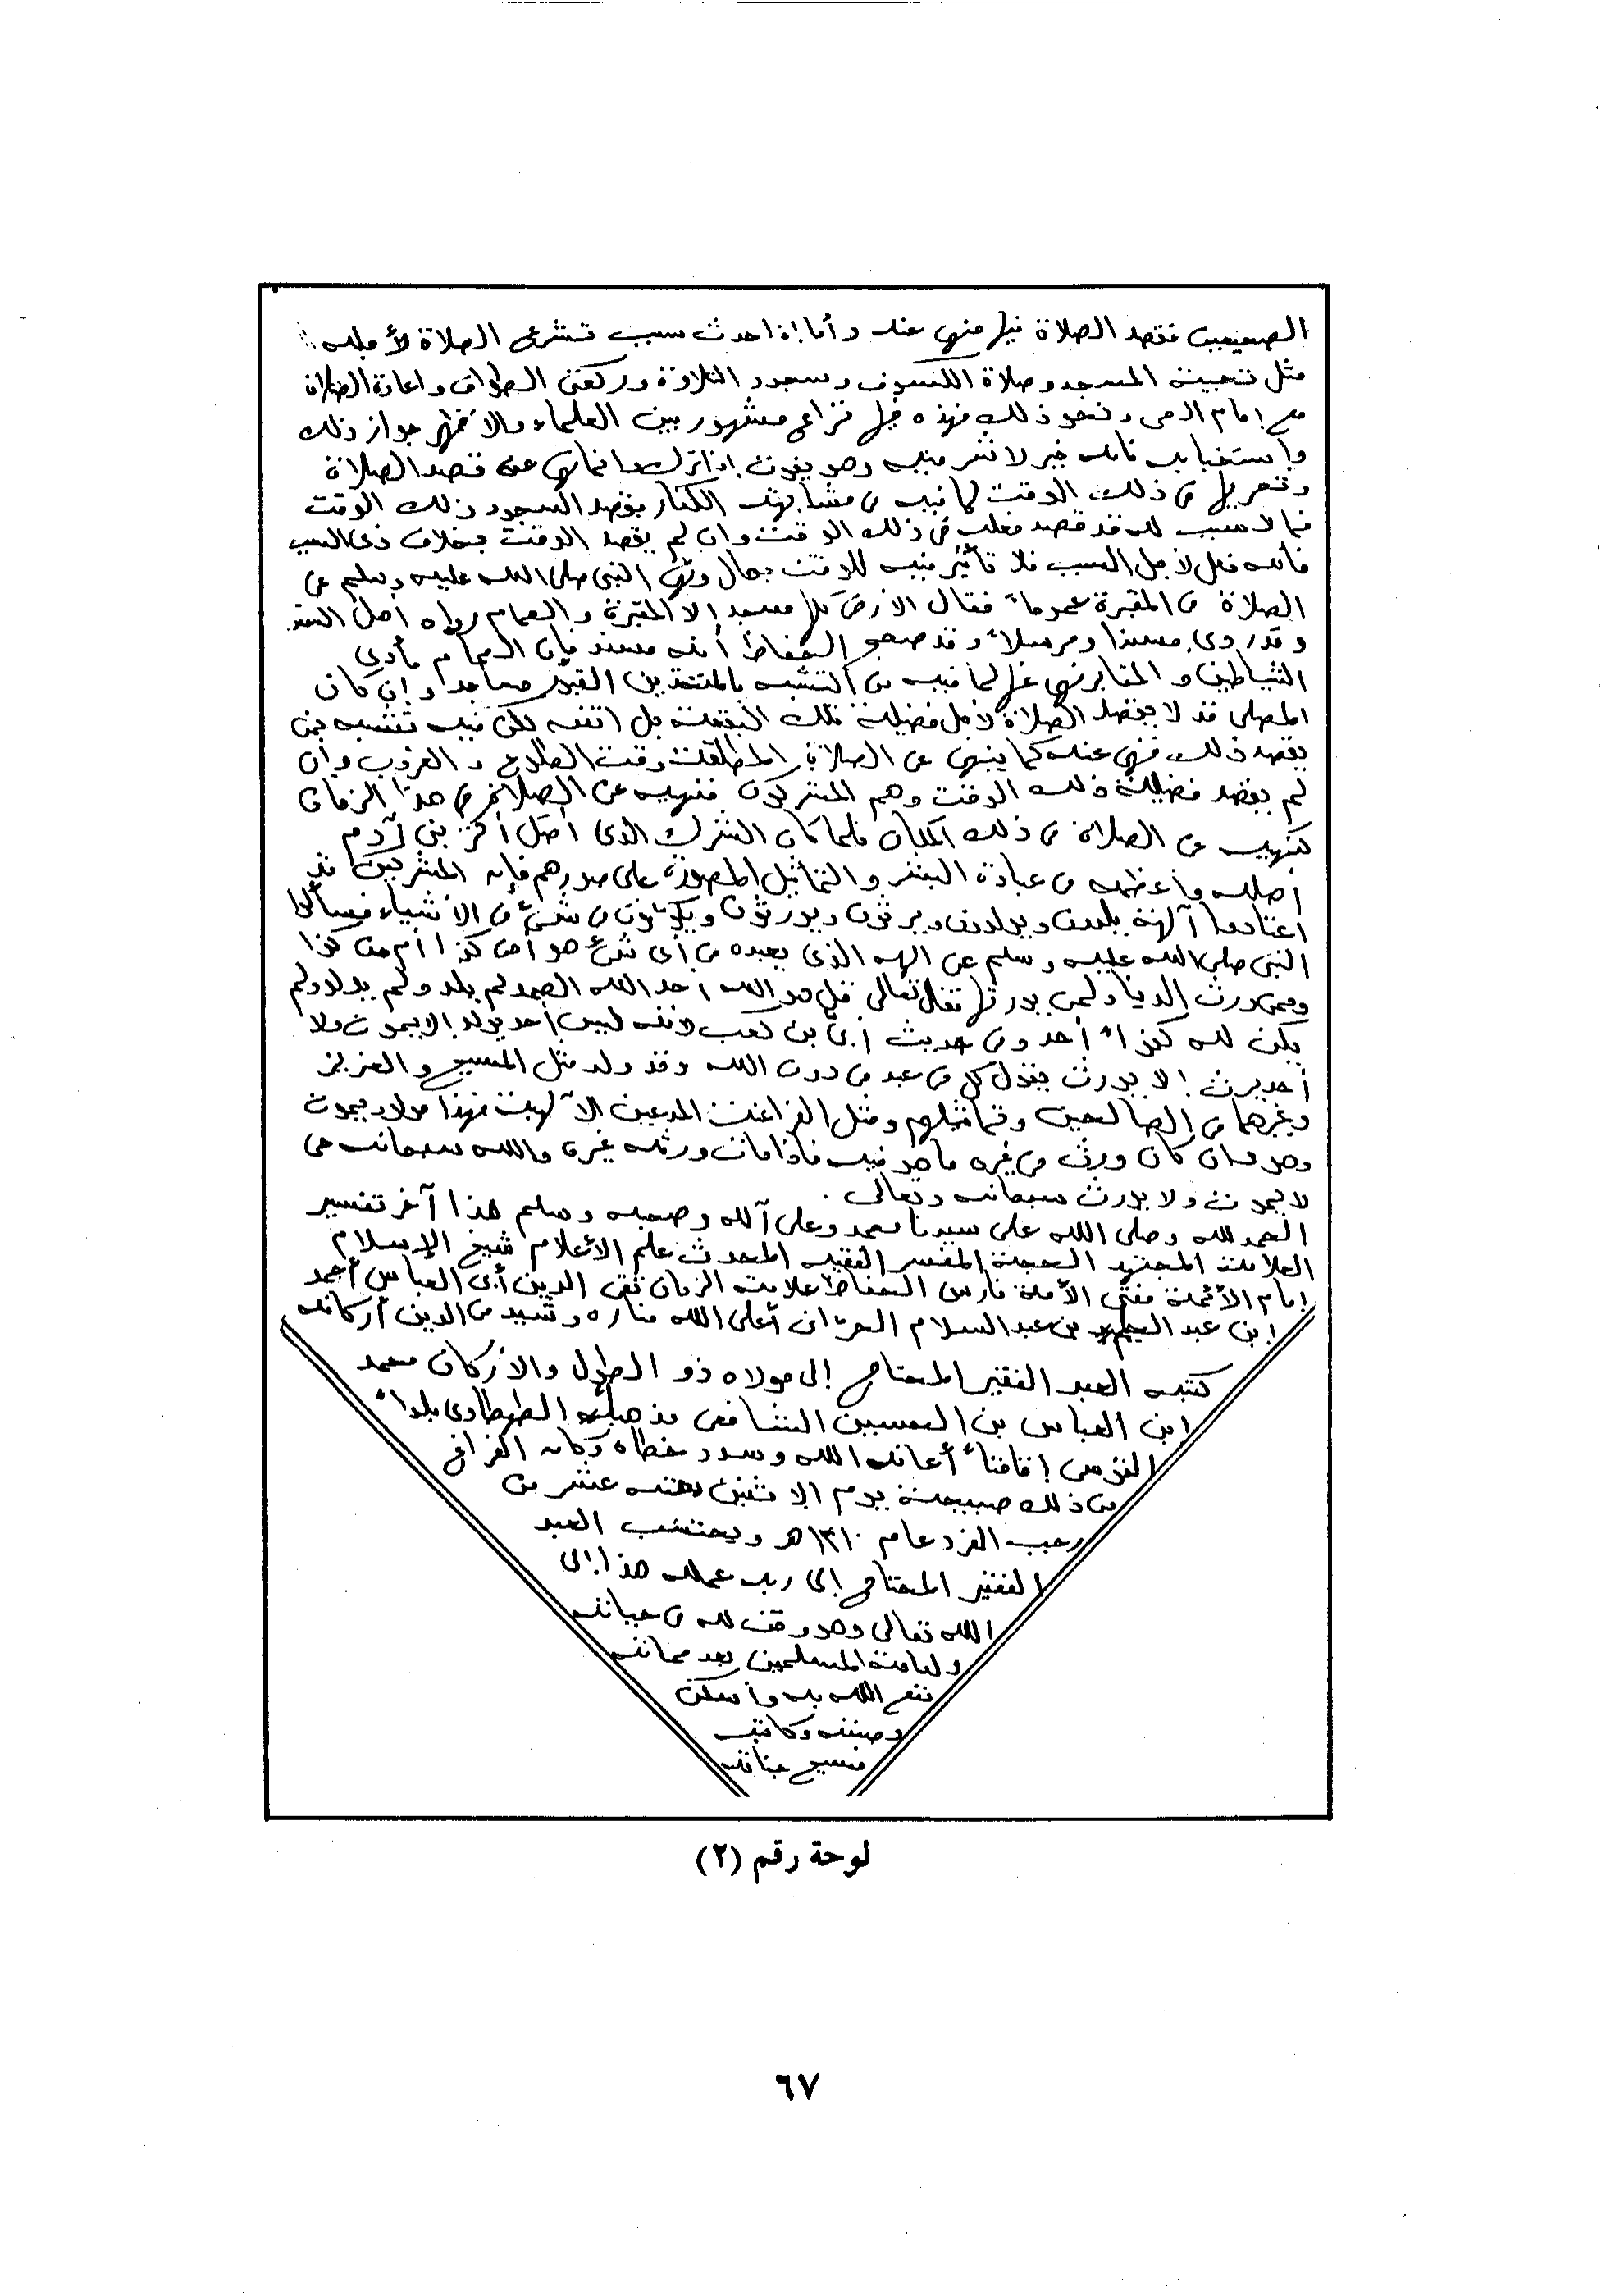 الصحيحين فقصد الصلاة فيها منهي عنه وأما إذا حدث سبب تشرع الصلاة لأجله
مثل تحية المسجد وصلاة الكسوف وسجود التلاوة وركعتي الطواف وإعادة الصلاة
مع إمام الحي ونحو ذلك فهذه فيها نزاع مشهور بين العلماء والأظهر جواز ذلك
واستحبابه فانه خير لا شر فيه وهو يفوت إذا ترك وانما نهى عن قصد الصلاة
وتحريها في ذلك الوقت لما فيه من مشابهة الكفار بقصد السجود ذلك الوقت
فما لا سبب له قد قصد فعله في ذلك الوقت وان لم يقصد الوقت بخلاف ذي السبب
فانه فعل لأجل السبب فلا تأثير فيه للوقت بحال ونهى النبي صلى الله عليه وسلم عن
الصلاة في المقبرة عموماً فقال الأرض كلها مسجد إلا المقبرة والحمام رواه أهل السنن
وقد روى مسندا ومرسلاً وقد صحح الحفاظ أنه مسند فإن الحمام مأوى
الشياطين والمقابر نهى عنها لما فيه من التشبه بالمتخذين القبور مساجد وإن كان
المصلى قد لا يقصد الصلاة لأجل فضيلة تلك البقعة بل اتفق لكن فيه تشبه بمن
يقصد ذلك فنهى عنه كما ينهى عن الصلاة المطلقة وقت الطلوع والغروب وان
لم يقصد فضيلة ذلك الوقت وهم المشركون فنهيه عن الصلاة في هذا الزمان
كنهيه عن الصلاة في ذلك المكان فلما كان الشرك الذي أضل أكثر بني آدم
أصله وأعظمه من عبادة البشر والتماثيل المصورة على صورهم فإن المشركين قد
اعتادوا آلهة يلدون ويولدون ويرثون ويورثون ويكونون من شيء من الأشياء فسألوا
النبي صلى الله عليه وسلم عن الهه الذي يعبده من أي شيء هو أمن كذا أم من كذا
وممن ورث الدنيا ولمن يورثها فقال تعالى قل هو الله أحد الله الصمد لم يلد ولم يولد ولم
يكن له كفواً أحد وفي حديث أبي بن كعب لأنه ليس أحد يولد إلا يموت ولا
أحد يرث إلا يورث يقول كل من عبد من دون الله وقد ولد مثل المسيح والعزيز
وغيرهما من الصالحين وتماثيلهم ومثل الفراعنة المدعين الآلهية فهذا مولود يموت
وهو وان كان ورث من غيره ما هو فيه فاذا مات ورثه غيره والله سبحانه حي
لا يموت ولا يورث سبحانه وتعالى.
الحمد لله وصلى الله على سيدنا محمد وعلى آله وصحبه وسلم هذا آخر تفسير
العلامة المجتهد الحجة المفسر الفقيه المحدث علم الأعلام شيخ الإسلام
إمام الأئمة مفتي الأمة فارس الحفاظ علامة الزمان تقى الدين أبى العباس أحمد
ابن عبد الحليم بن عبد السلام الحراني أعلى الله مناره وشيد من الدين أركانه
كتبه العبد الفقير المحتاج إلى مولاه ذو الطول والأركان محمد
ابن العباس بن الحسين الشافعي مذهباً الطهطاوى بلداً
إقامتاً أعانه الله وسدد خطاه وكان الفراغ
من ذلك صبيحة يوم الاثنين عشر من
رجب الفرد عام ١٣١٠ هـ ويحتسب العبد
الفقير المحتاج إلى ربه عمله هذا إلى
الله تعالى وهو وقف لله في حياته
ولعامة المسلمين بعد مماته
نفع الله به وأسكن
وكاتبه
فسيح جناته
لوحة رقم (٢)
٦٧